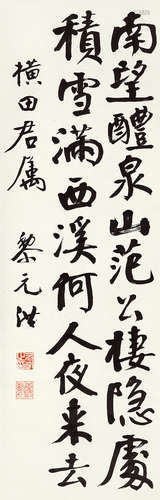 南望醴泉山范公棲隱處
積雪滿西溪何人夜來去
橫田君属
黎元洪